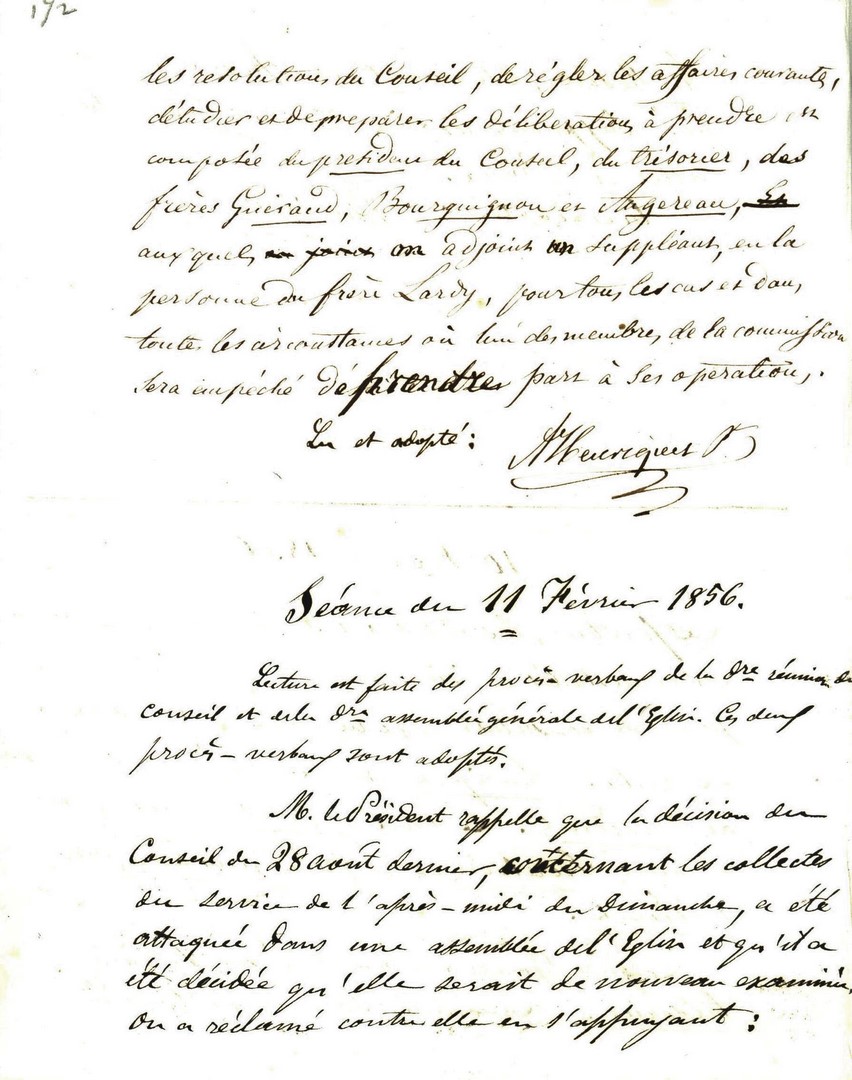 172
les resolutions du Conseil, de régler les affaires courantes,
d'étudier et de préparer les déliberations à prendre en
composée du president du Conseil, du trésorier, des
frères Guéraud, Bourguignon et Augereau,
aux quels on adjoint un suppléant, en la
personne du frère Lardy, pour tous les cas et dans
toutes les circonstances où l'un des membres de la commission
sera empêché de prendre part à ses operations.
Lu et adopté :
Séance du 11 Février 1856.
Lecture est faite des procès-verbaux de la dre réunion du
conseil et de la dre assemblée générale de l'Eglise. Ces deux
procès-verbaux sont adoptés.
M. le Président rappelle que la décision du
Conseil du 28 août dernier, concernant les collectes
du service de l'après-midi du Dimanche, a été
attaquée dans une assemblée de l'Eglise et qu'il a
été décidée qu'elle serait de nouveau examinée,
on a réclamé contre elle en s'appuyant :